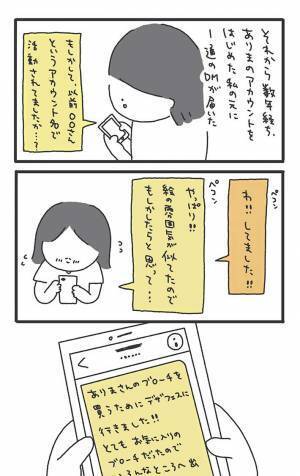 それから数年経ち、
ありまのアカウントを
はじめた私の元に
一通のDMが届いた
もしかして、以前〇〇さん
というアカウント名で
活動されてましたか…?
ペコン
わ!!してました!!
ペコン
やっぱり!!
絵の雰囲気が似てたので
もしかしたらと思って…
ありまさんのブローチを
買うためにデザフェスに
行きました!!
とてもお気に入りの
ブローチだったので
ろんなところへ出